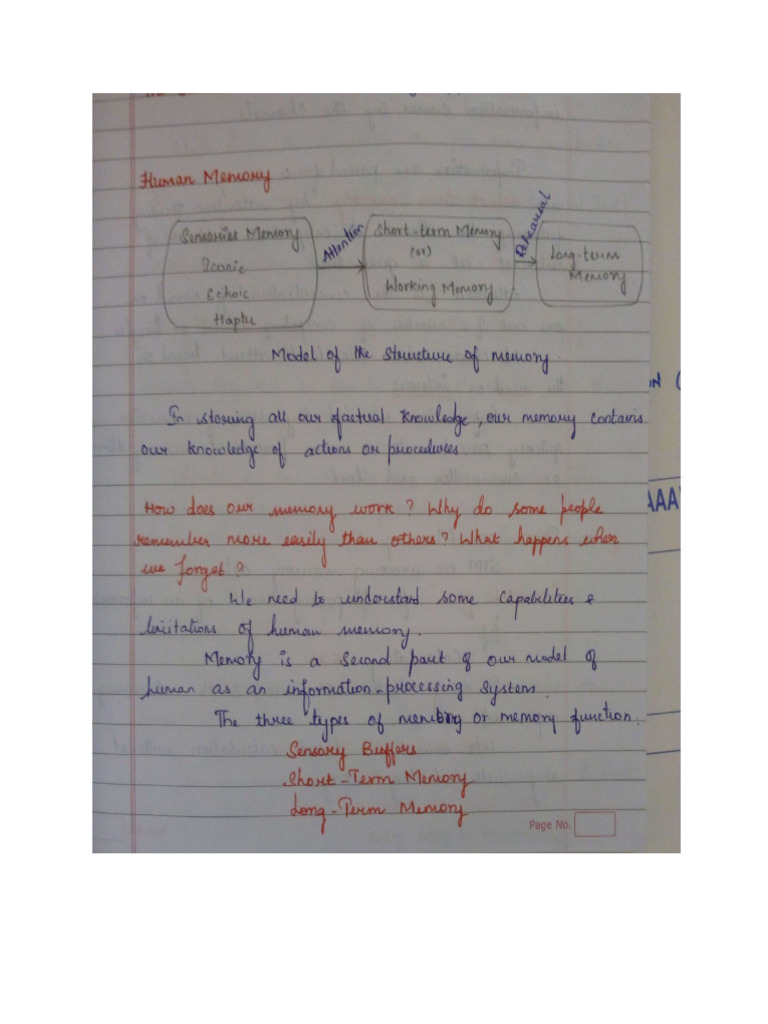 Human Memory
Sensories Memory
Iconic
Echoic
Haptic
Attention
Short-term Memory
(or)
Working Memory
Rehearsal
Long-term
Memory
Model of the structure of memory.
In storing all our factual knowledge, our memory contains
our knowledge of actions or procedures
How does our memory work? Why do some people
remember more easily than others? What happens when
we forget?
We need to understand some capabilities &
limitations of human memory.
Memory is a second part of our model of
human as an information-processing system.
The three types of memory or memory function.
Sensory Buffers
Short-Term Memory
Long-Term Memory
Page No.
AAA